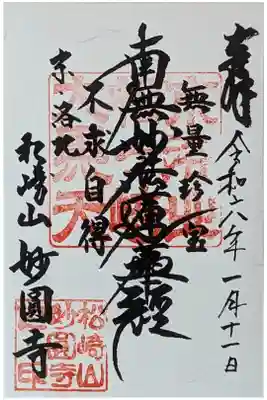 奉拝
令和六年 一月十一日
無量珍宝
南無妙法蓮華経
不求自得
京・洛北
松崎山 妙圓寺
松崎山
妙圓寺
印